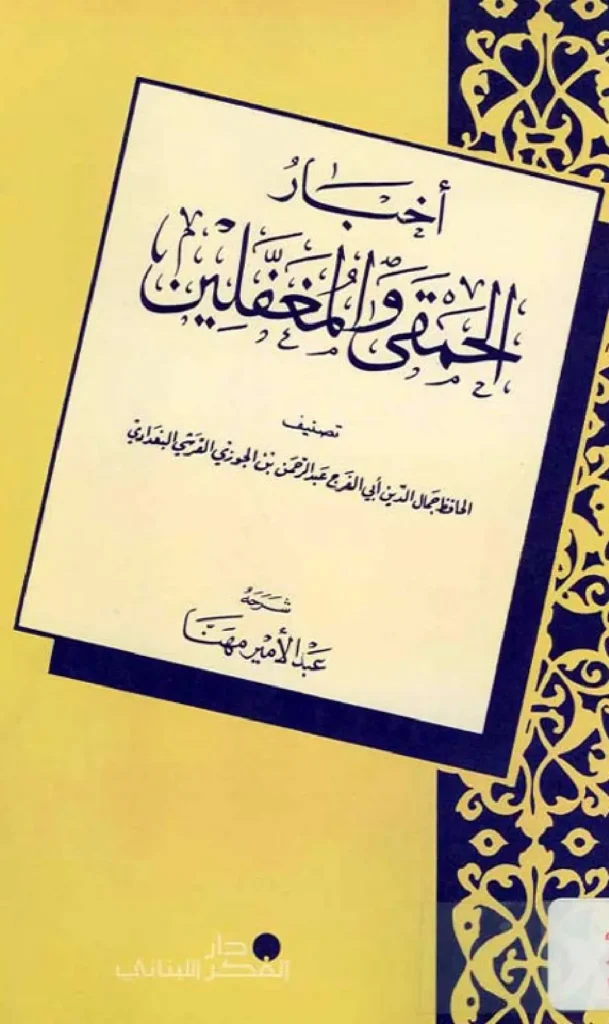 أخبار
الحمقى والمغفَّلين
تصنيف
الحافظ جمال الدين أبي الفرج عبدالرحمن بن الجوزي القرشي البغدادي
شرحه
عبد الأمير مهنا
دار
الفكر اللبناني